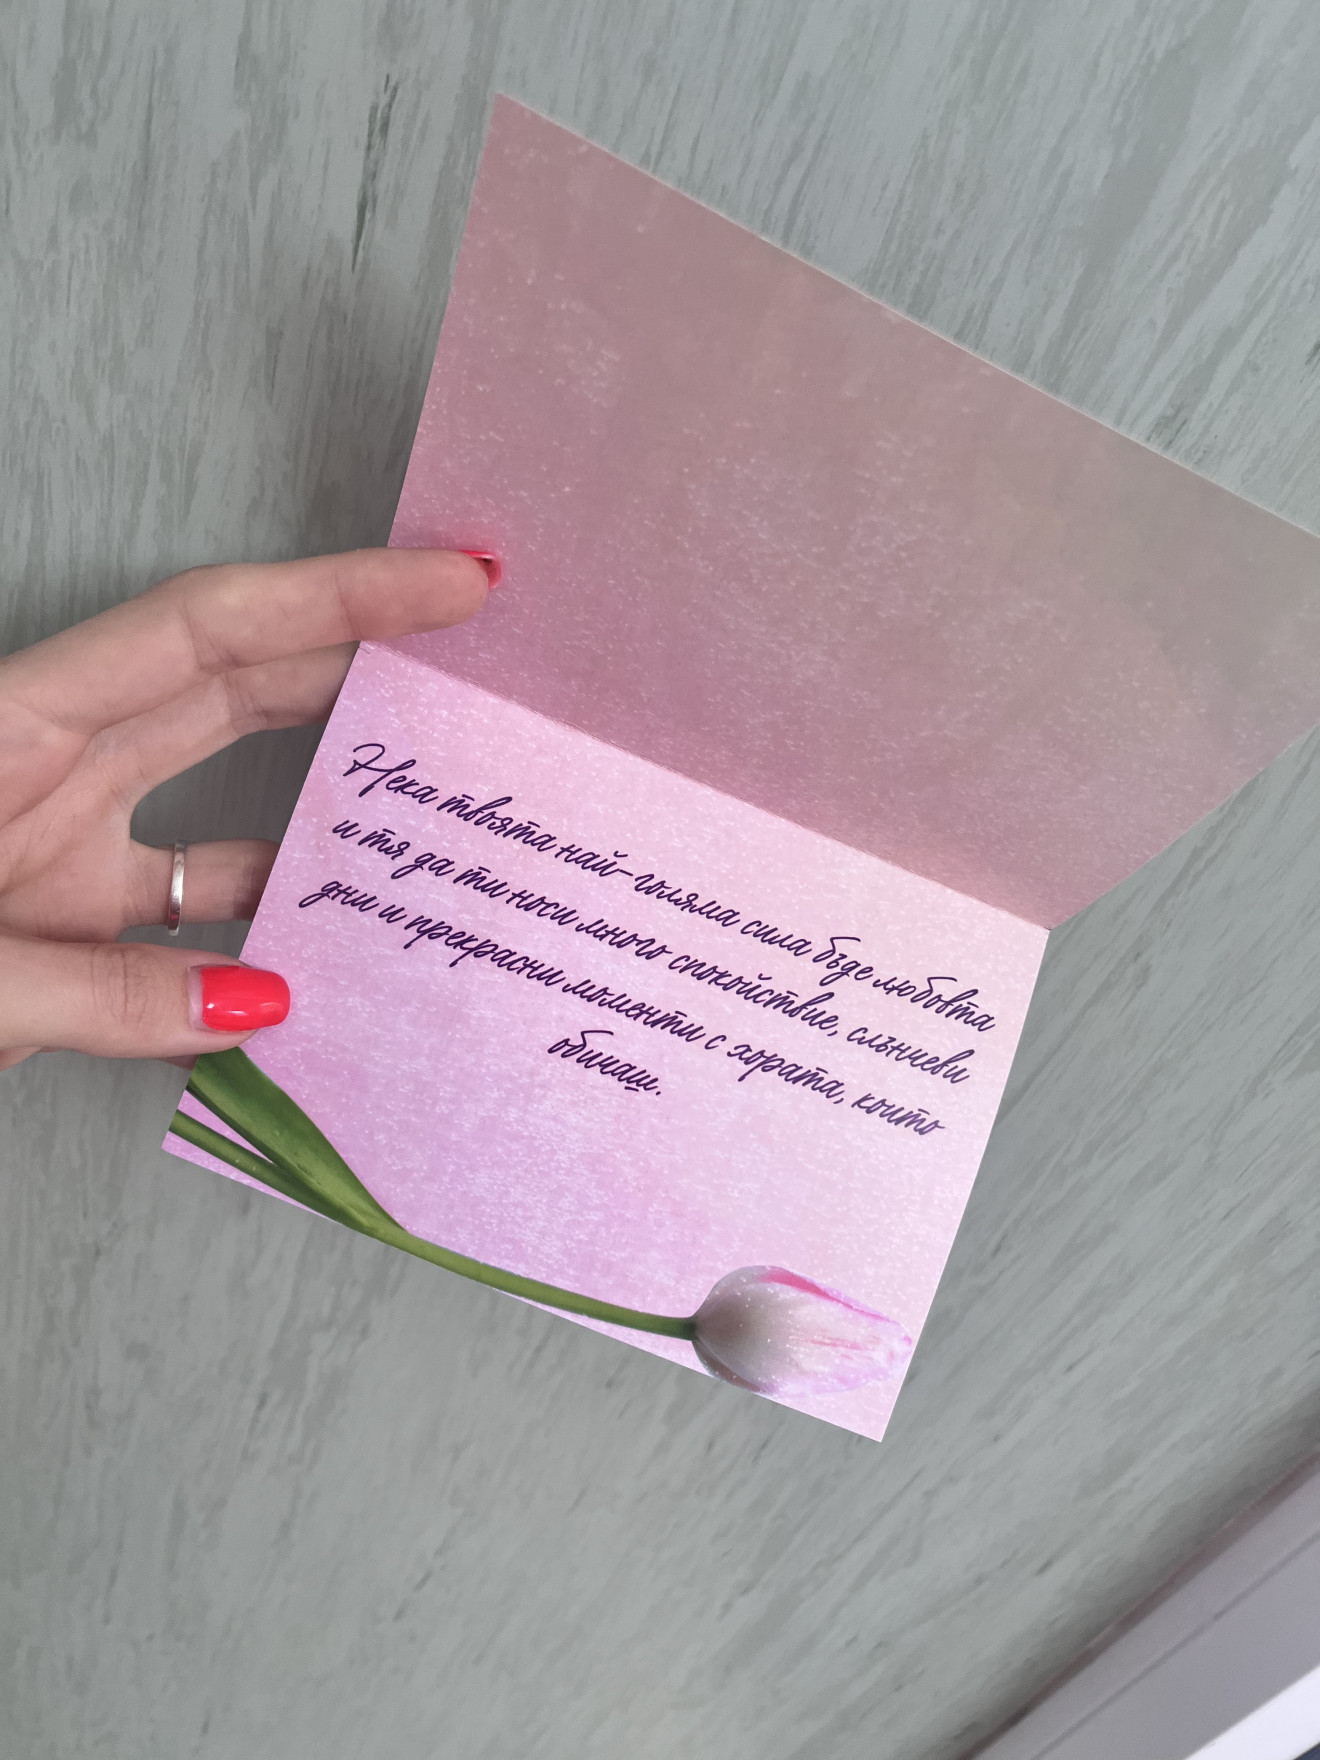 Нека твоята най-голяма сила бъде любовта
и тя да ти носи много спокойствие, слънчеви
дни и прекрасни моменти с хората, които
обичаш.